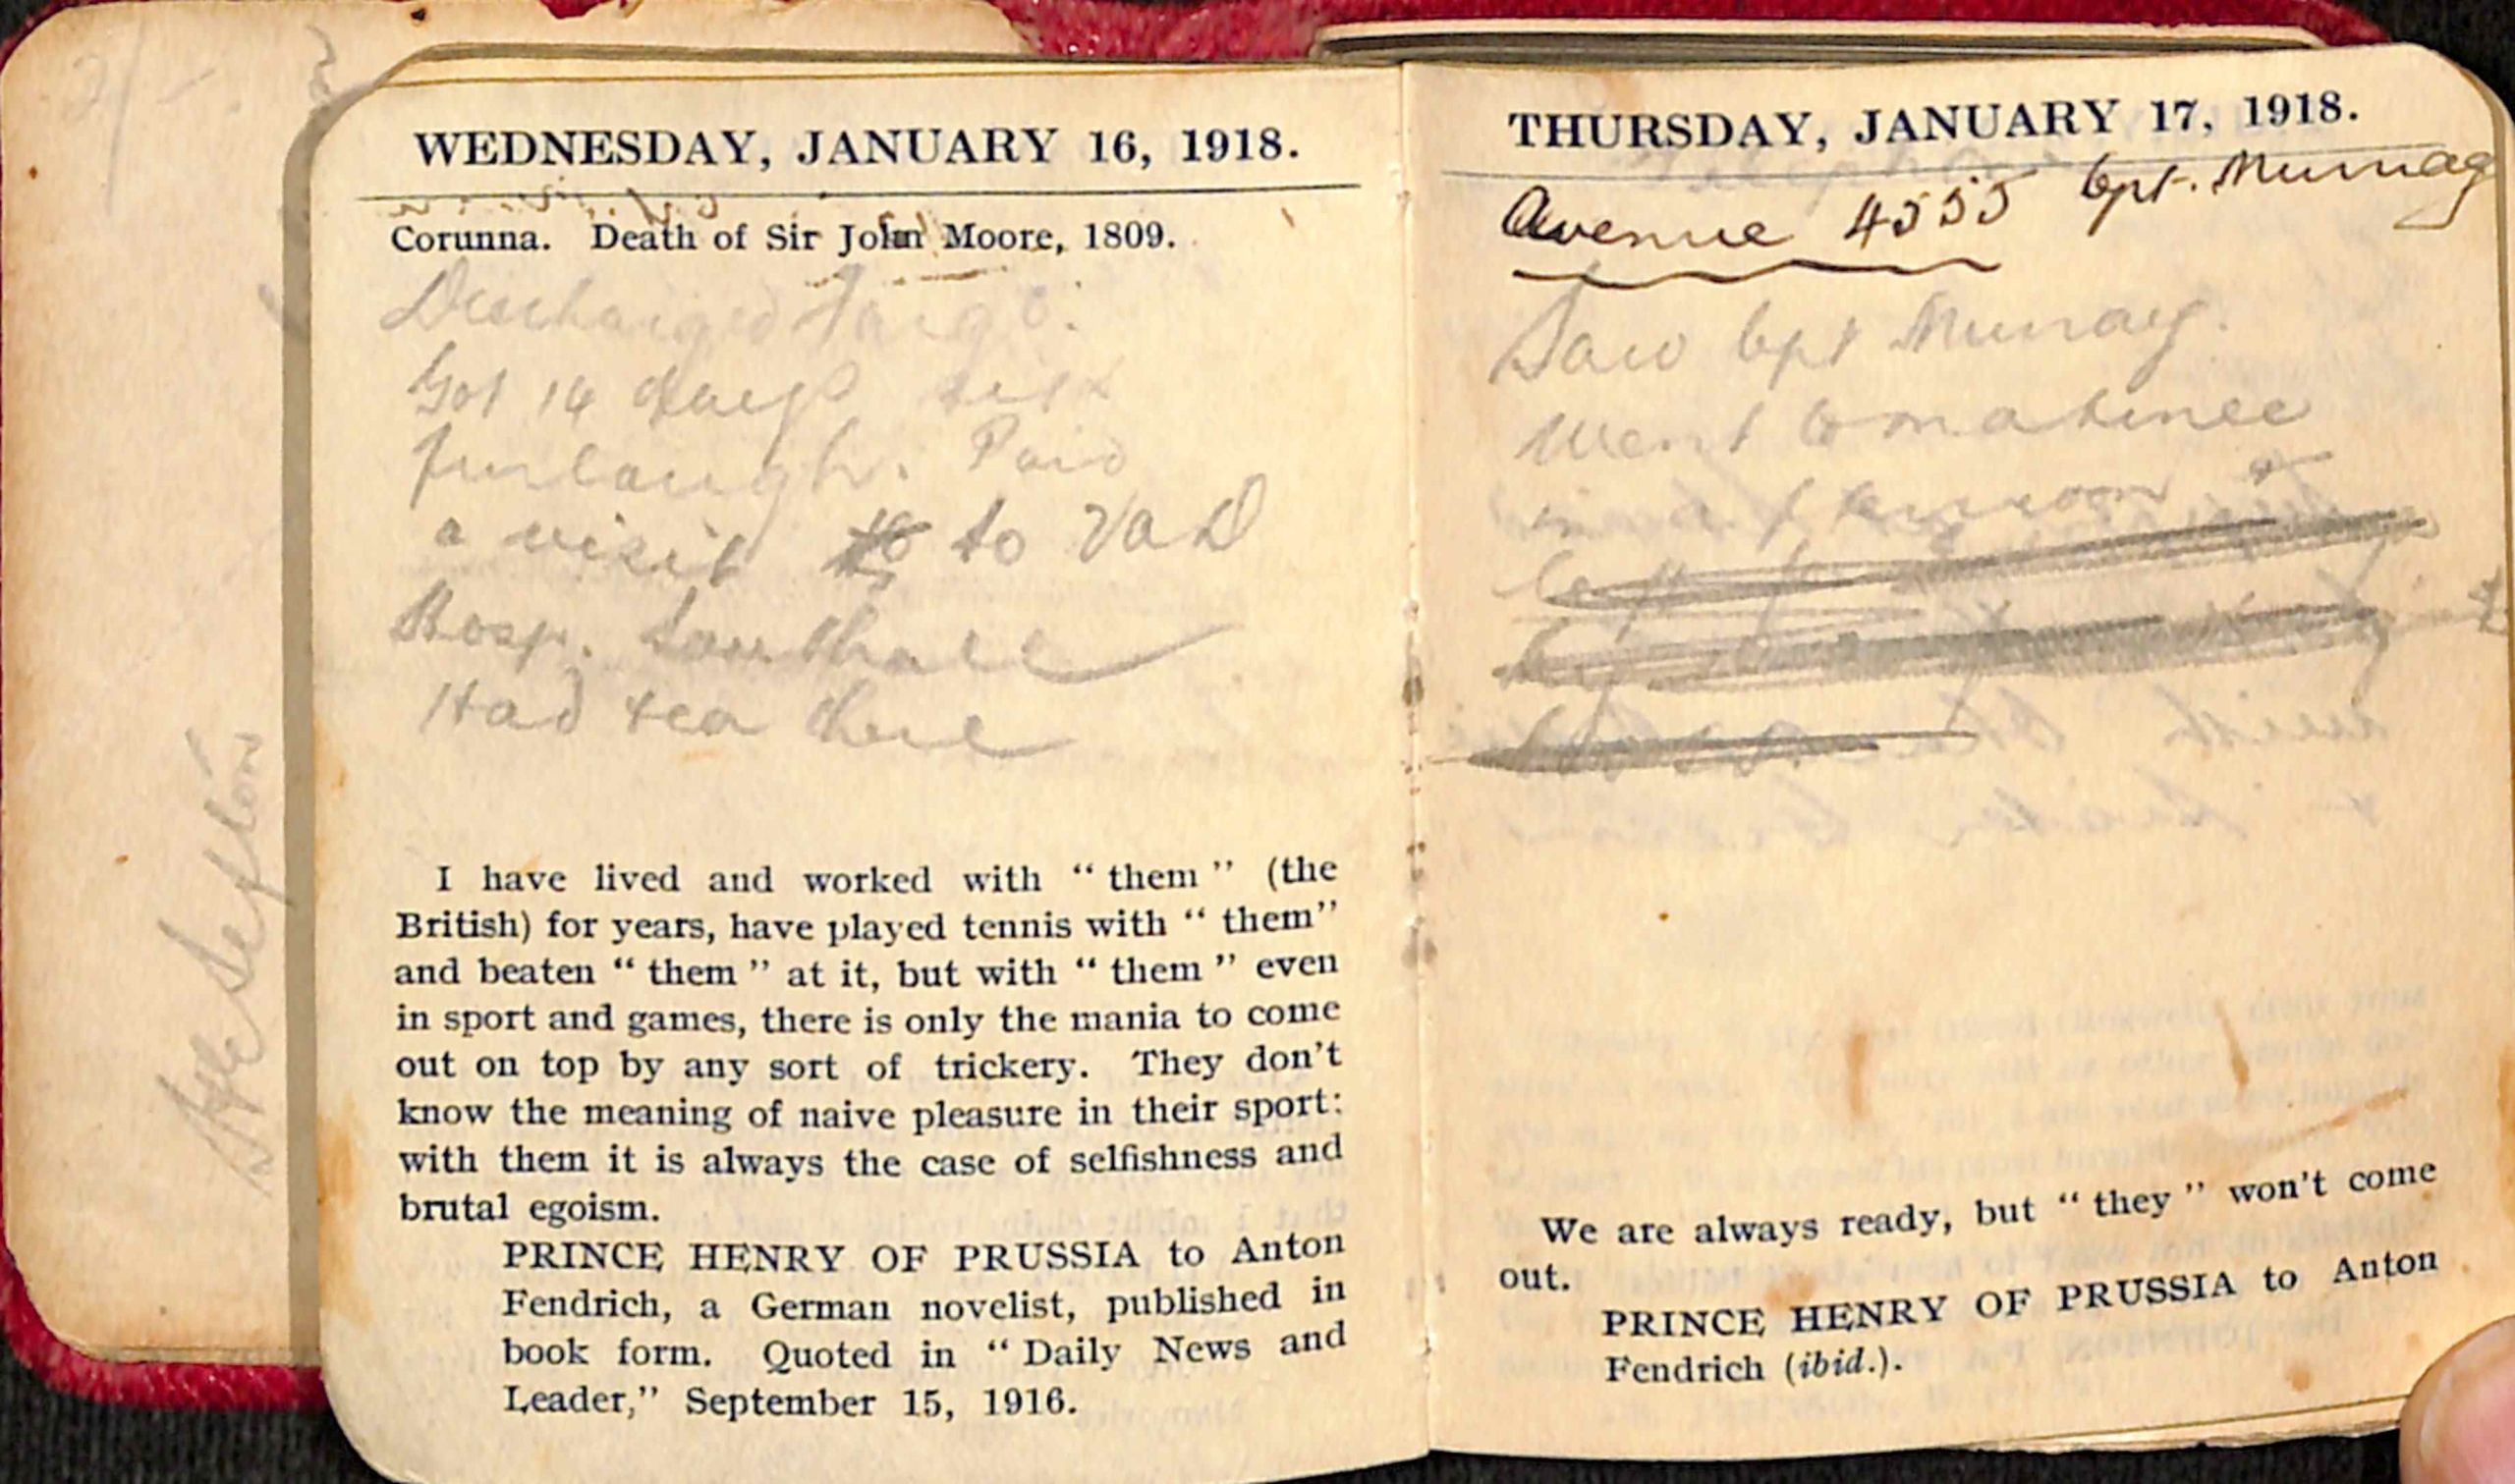 2/-
WEDNESDAY, JANUARY 16, 1918.
Corunna. Death of Sir John Moore, 1809.
Discharged
Got 14 days sick
furlough. Paid
a visit to to VAD
Hosp. Southall
Had tea there
I have lived and worked with “ them ” (the
British) for years, have played tennis with “ them”
and beaten “ them ” at it, but with “ them ” even
in sport and games, there is only the mania to come
out on top by any sort of trickery. They don't
know the meaning of naive pleasure in their sport:
with them it is always the case of selfishness and
brutal egoism.
PRINCE HENRY OF PRUSSIA to Anton
Fendrich, a German novelist, published in
book form. Quoted in “ Daily News and
Leader,” September 15, 1916.
Sefton
THURSDAY, JANUARY 17, 1918.
Avenue 4555 Cpt. Murray
Saw Cpt Murray.
Went to matinee
in
We are always ready, but “ they ” won't come
out.
PRINCE HENRY OF PRUSSIA to Anton
Fendrich (ibid.).